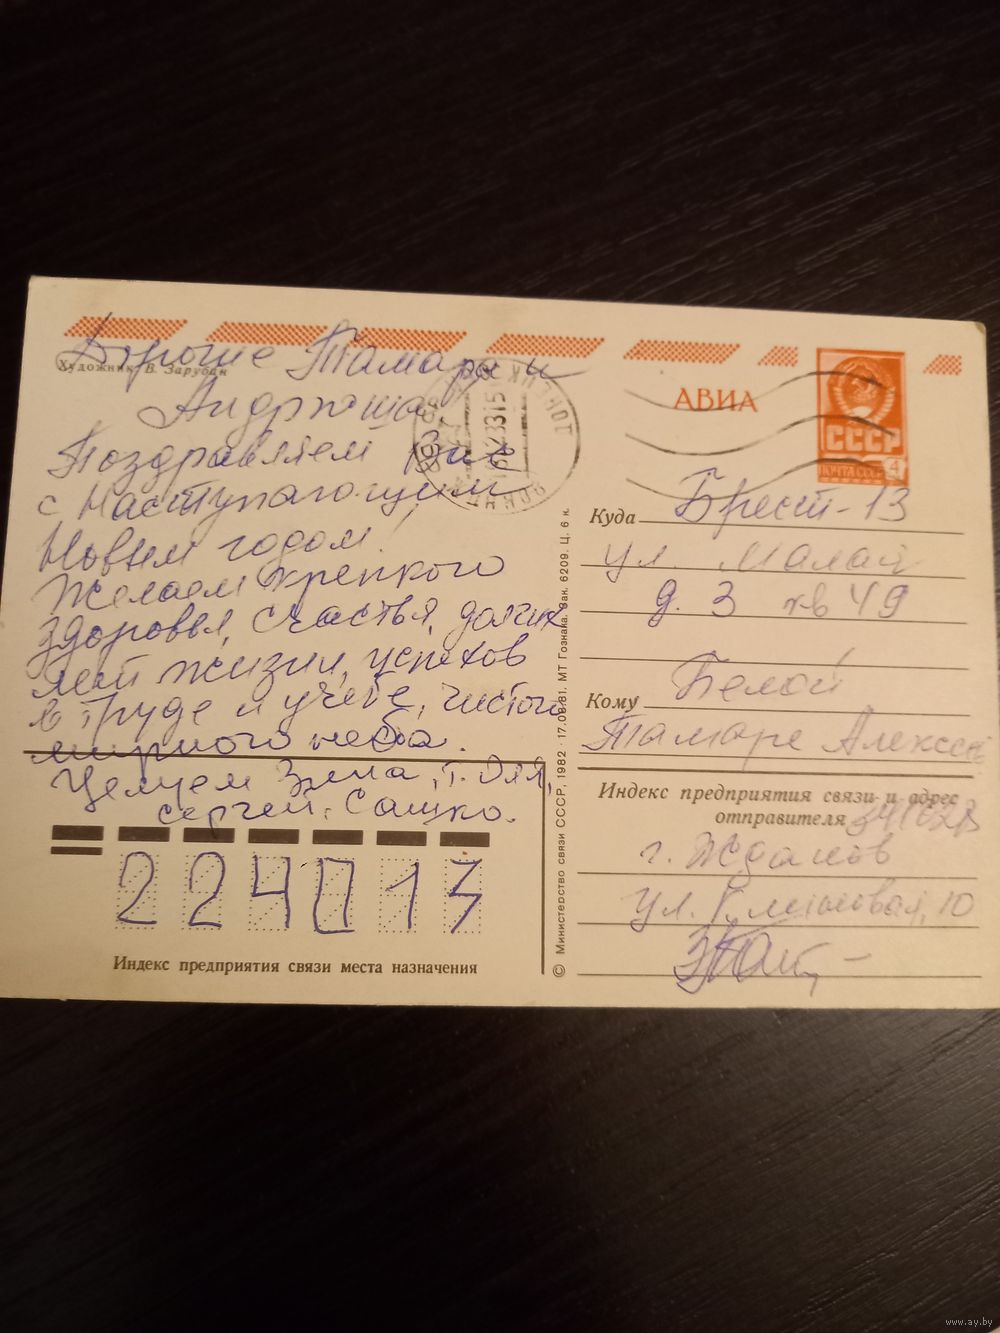 Художник В. Зарубин
Дорогие Тамара и
Андрюша
Поздравляем Вас
с Наступающим
Новым годом!
Желаем крепкого
здоровья, счастья, долгих
лет жизни, успехов
в труде и учебе, чистого
мирного неба.
Целуем Зина, т. Оля,
Сергей, Сашко.
224013
Индекс предприятия связи места назначения
© Министерство связи СССР, 1982 · 17.08.81. МТ Гознака. Зак. 6209. Ц. 6 к.
АВИА
СССР
ПОЧТА СССР 4
ДОНЕЦК
Куда Брест-13
ул. Малая
д. 3 кв 49
Кому Белой
Тамаре Алексее
Индекс предприятия связи и адрес
отправителя
г. Жданов
ул. 10
www.ay.by